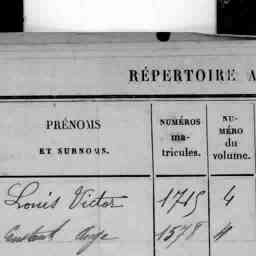 RÉPERTOIRE A
PRÉNOMS
ET SURNOMS.
NUMÉROS
ma-
tricules.
NU-
MÉRO
du
volume.
Louis Victor 1715 4
Constant 1578 "